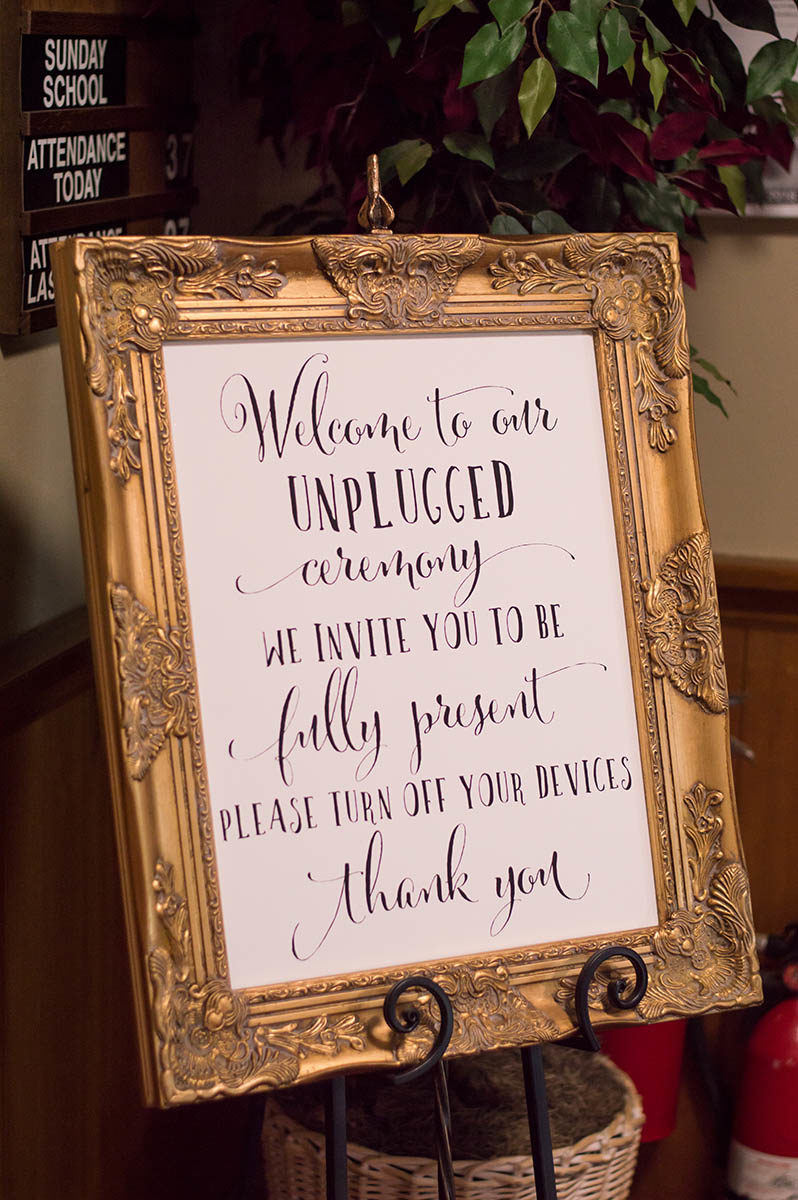 SUNDAY
SCHOOL
ATTENDANCE
TODAY
37
Welcome to our
UNPLUGGED
ceremony
WE INVITE YOU TO BE
fully present
PLEASE TURN OFF YOUR DEVICES
thank you